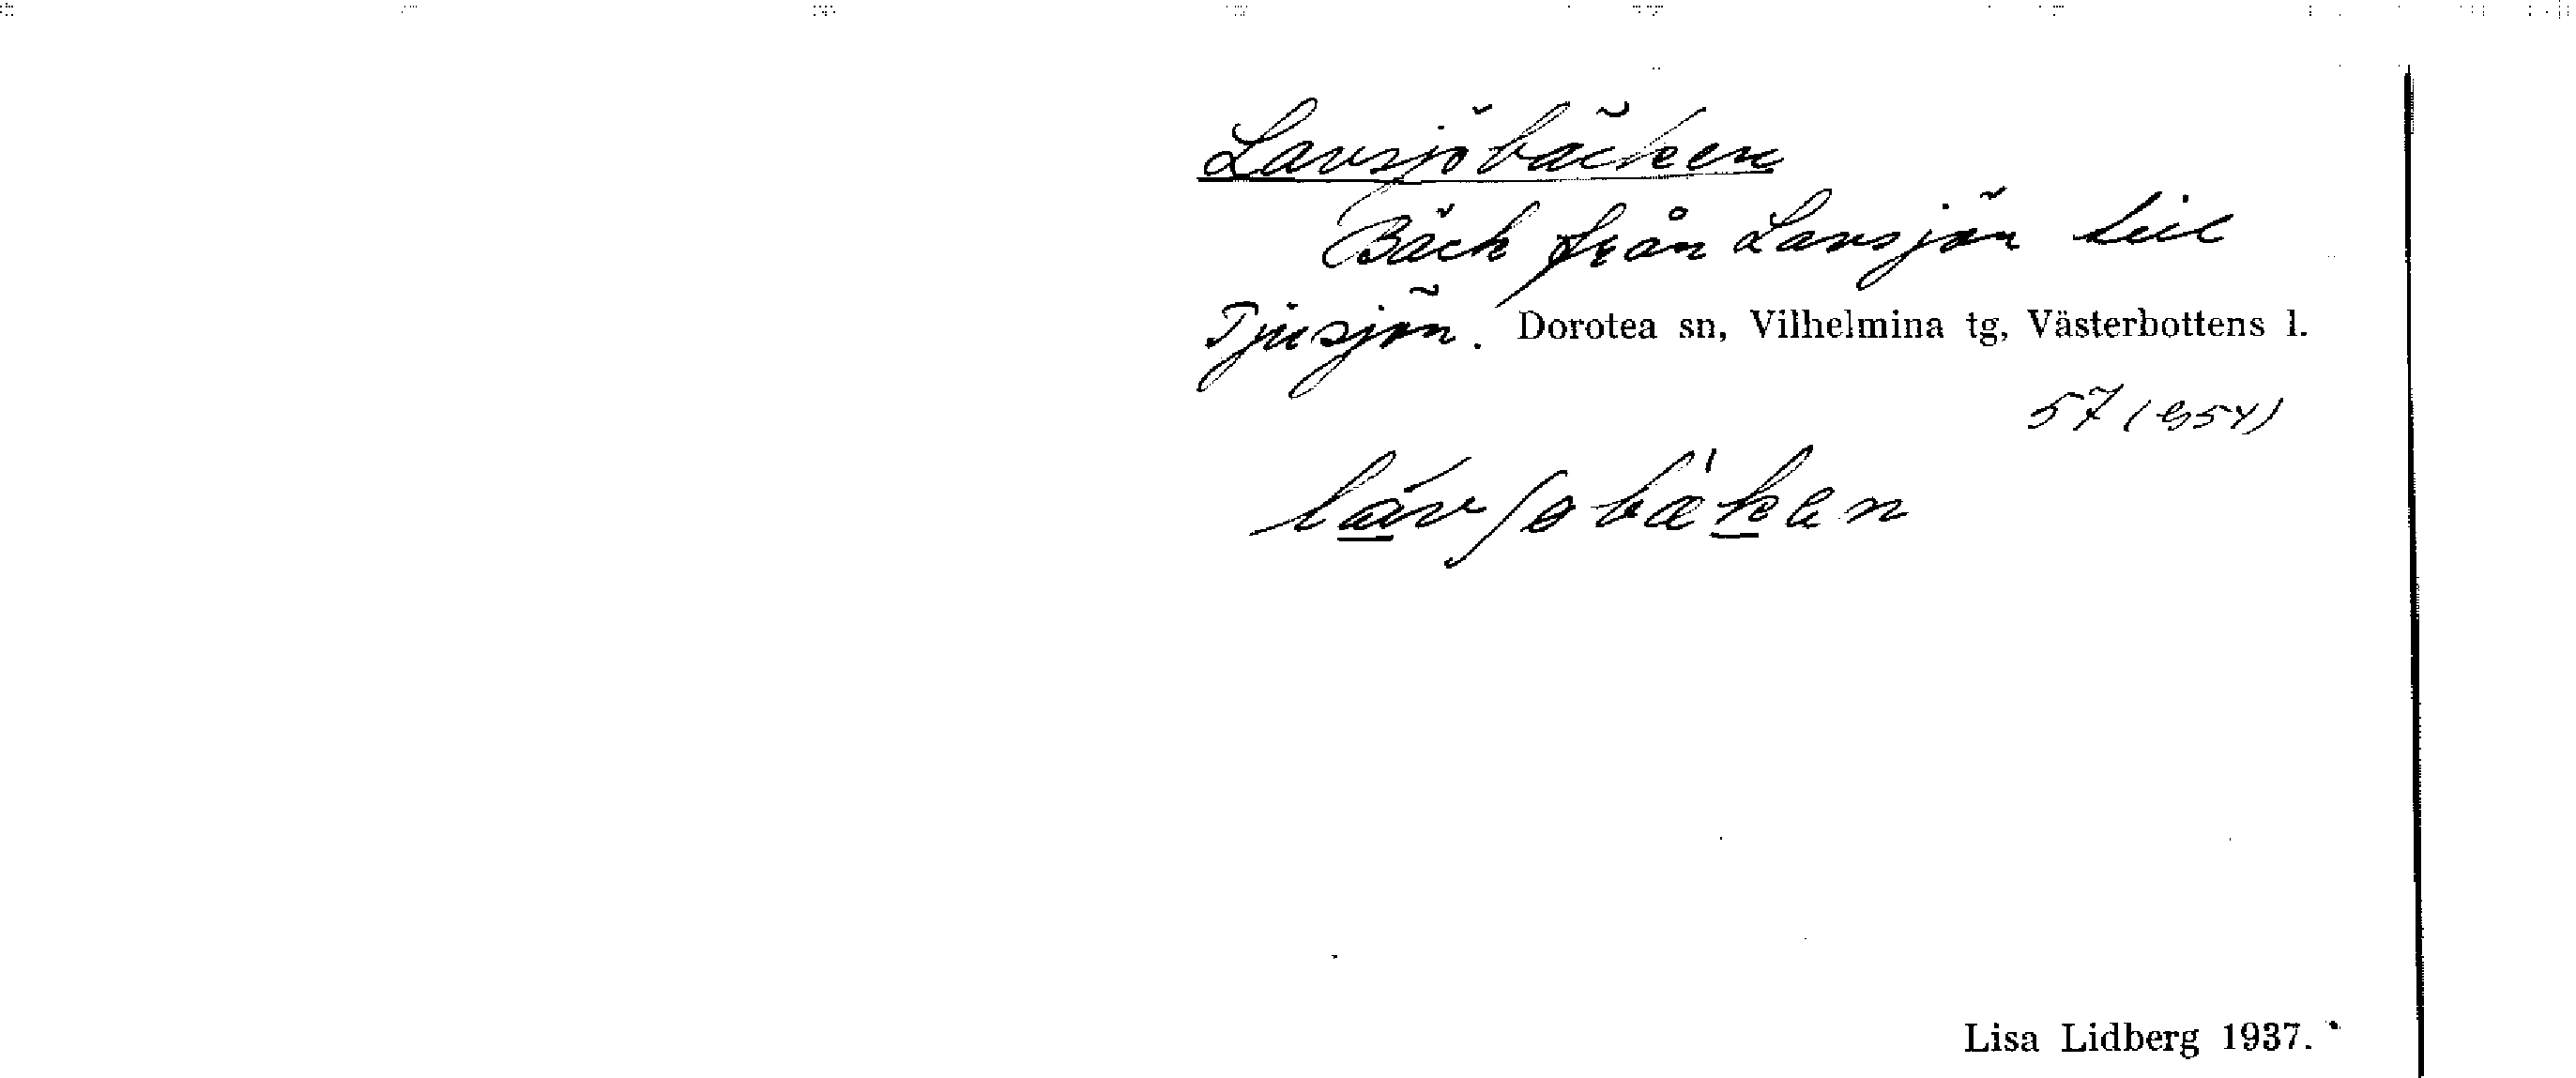 Lavsjöbäcken
Bäck från Lavsjön till
Tjusjön. Dorotea sn, Vilhelmina tg, Västerbottens l.
57
Lisa Lidberg 1937.